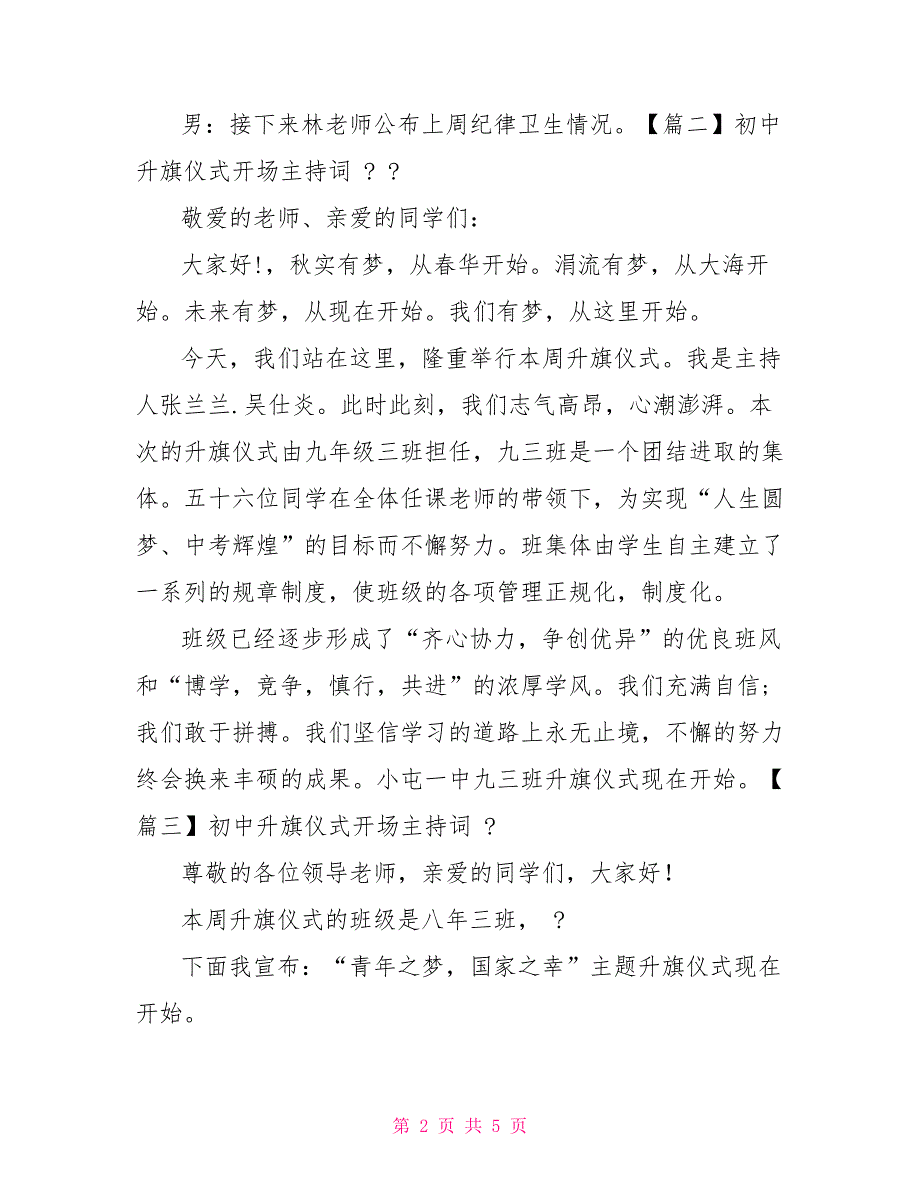 男：接下来林老师公布上周纪律卫生情况。【篇二】初中
升旗仪式开场主持词 ? ?
敬爱的老师、亲爱的同学们：
大家好!，秋实有梦，从春华开始。涓流有梦，从大海开
始。未来有梦，从现在开始。我们有梦，从这里开始。
今天，我们站在这里，隆重举行本周升旗仪式。我是主持
人张兰兰.吴仕炎。此时此刻，我们志气高昂，心潮澎湃。本
次的升旗仪式由九年级三班担任，九三班是一个团结进取的集
体。五十六位同学在全体任课老师的带领下，为实现“人生圆
梦、中考辉煌”的目标而不懈努力。班集体由学生自主建立了
一系列的规章制度，使班级的各项管理正规化，制度化。
班级已经逐步形成了“齐心协力，争创优异”的优良班风
和“博学，竞争，慎行，共进”的浓厚学风。我们充满自信;
我们敢于拼搏。我们坚信学习的道路上永无止境，不懈的努力
终会换来丰硕的成果。小屯一中九三班升旗仪式现在开始。【
篇三】初中升旗仪式开场主持词 ?
尊敬的各位领导老师，亲爱的同学们，大家好！
本周升旗仪式的班级是八年三班， ?
下面我宣布：“青年之梦，国家之幸”主题升旗仪式现在
开始。
第 2 页 共 5 页